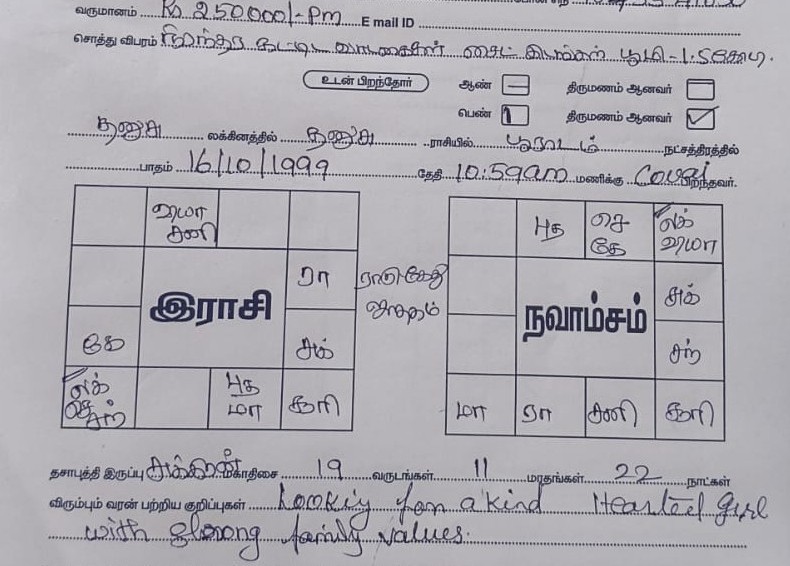 வருமானம் Rs 250000/-Pm E mail ID
சொத்து விபரம் சைட்
உடன் பிறந்தோர் ஆண் — திருமணம் ஆனவர்
பெண் 1 திருமணம் ஆனவர் ✓
தனுசு லக்கினத்தில் தனுசு ராசியில் பூராடம் நட்சத்திரத்தில்
பாதம் 16/10/1999 தேதி 10:59am மணிக்கு Covai பிறந்தவர்.
குரு சனி
ரா
இராசி
கே சுக்
லக் செ சந்
புத சூரி
ராகு கேது ஜாதகம்
புத செ கே லக்
சுக்
நவாம்சம்
சந்
மா ரா சனி சூரி
தசாபுத்தி இருப்பு சுக்கிரன் மகாதிசை 19 வருடங்கள் 11 மாதங்கள் 22 நாட்கள்
விரும்பும் வரன் பற்றிய குறிப்புகள் Looking for a kind Hearted girl
with strong family values.